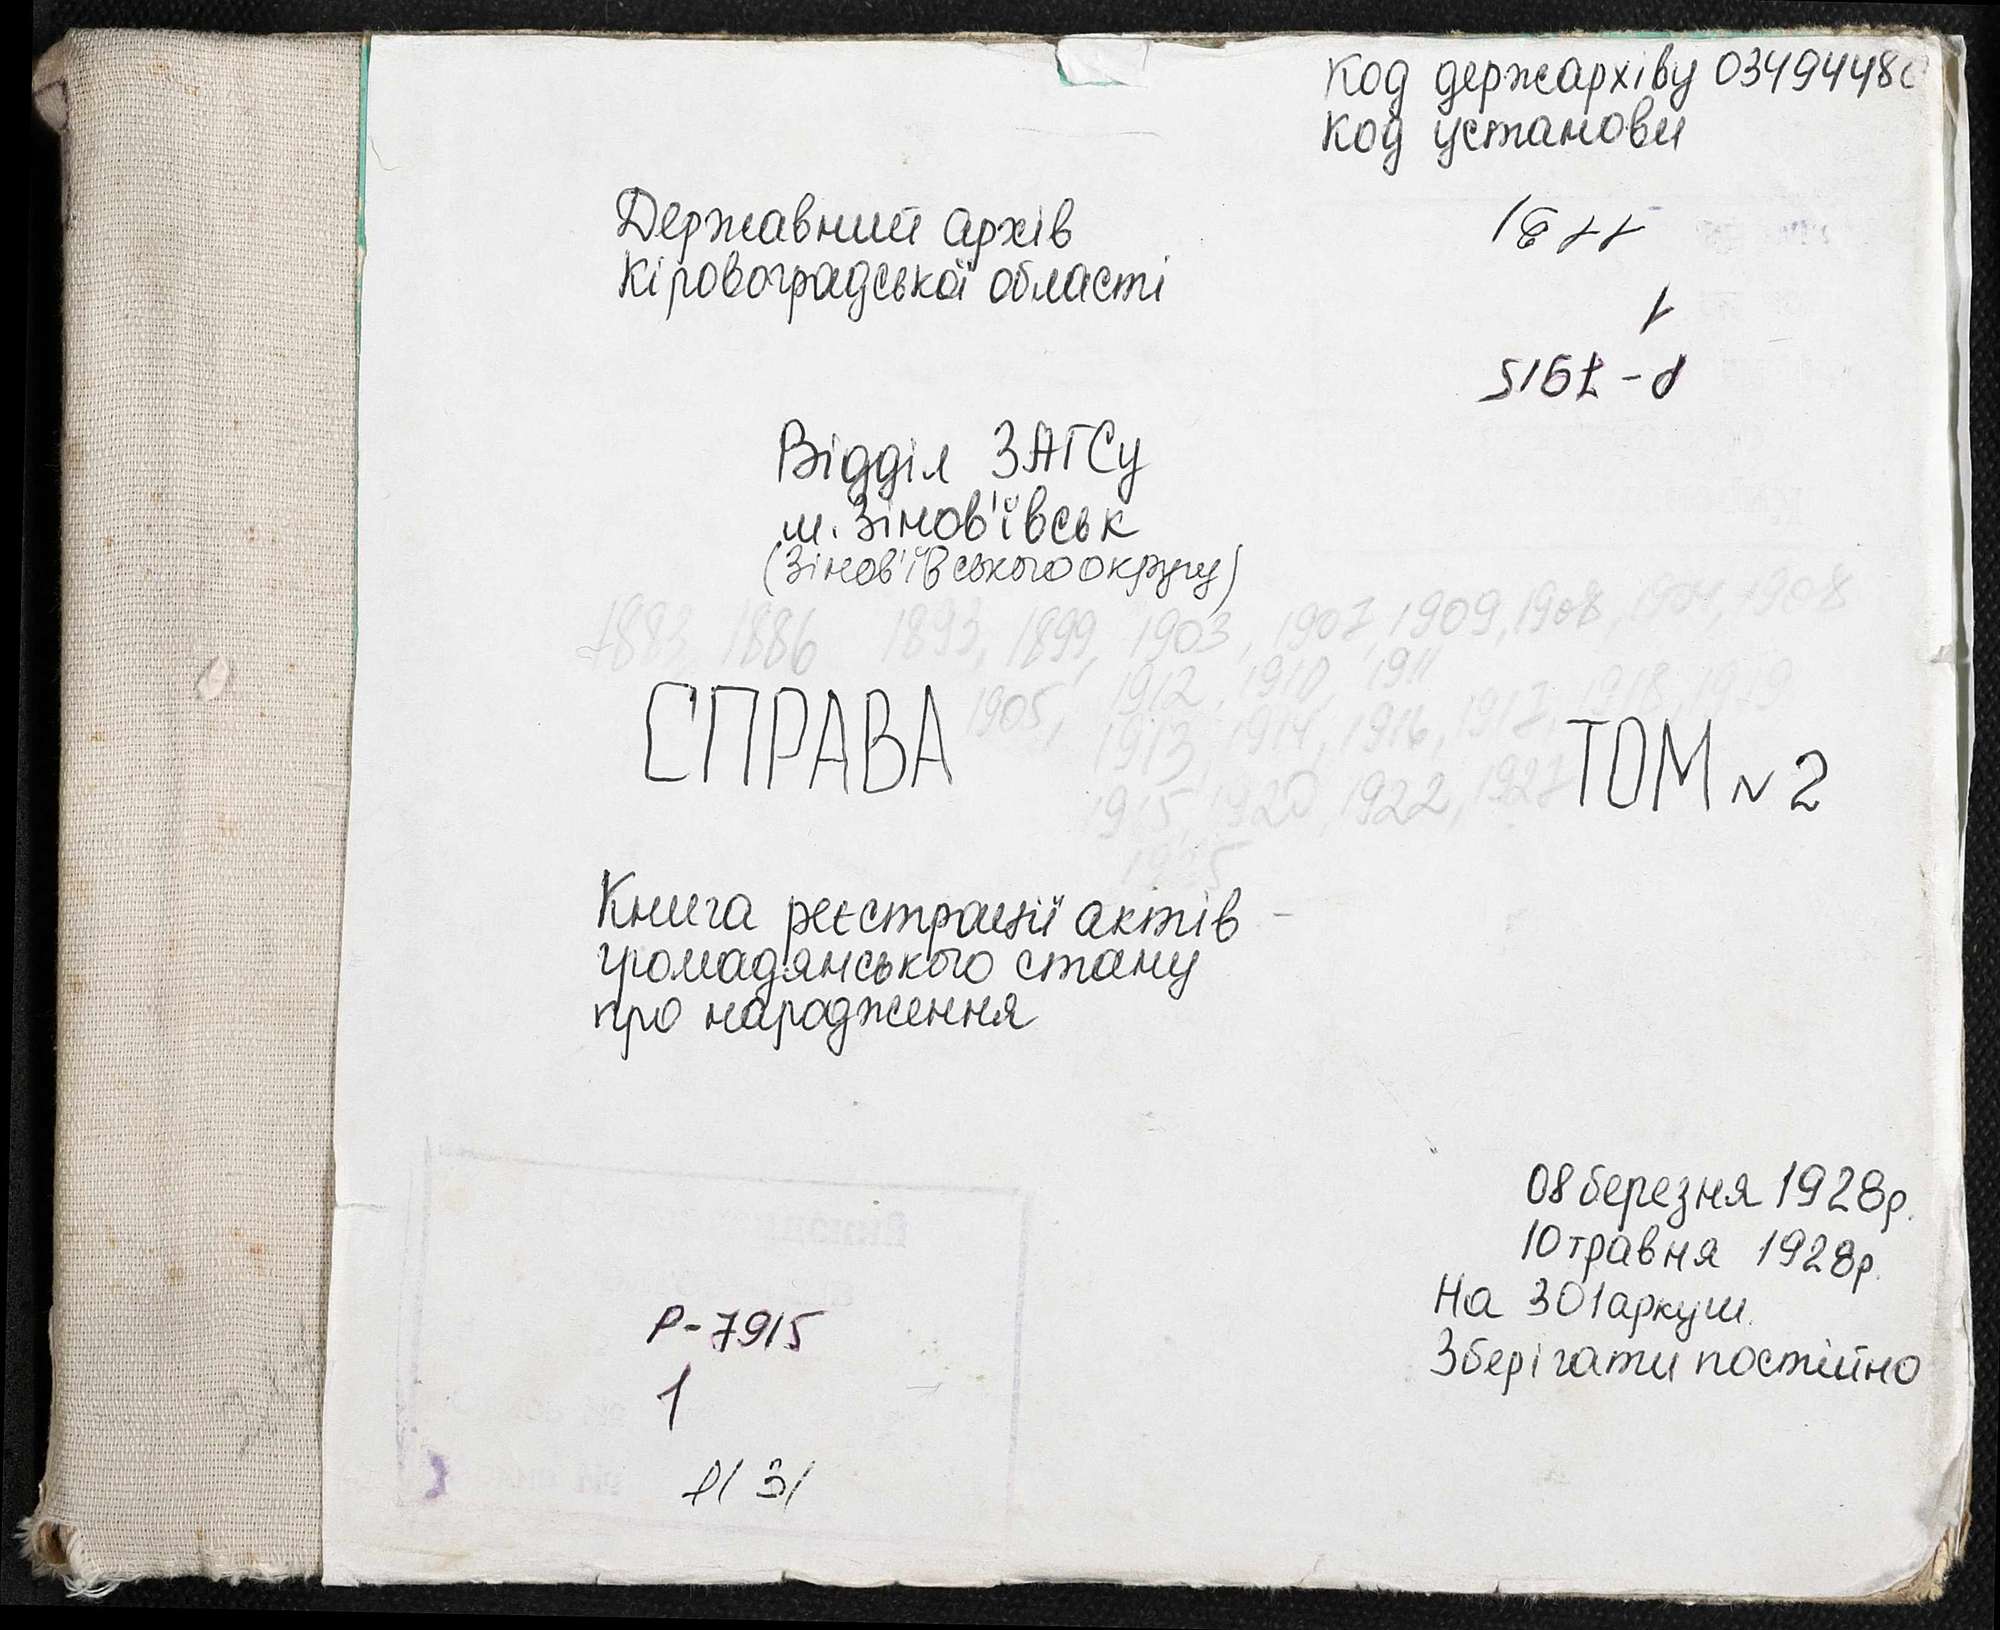 Код держархіву 0349448
Код установи
Державний архів
Кіровоградської області
1
Р-7915
Відділ ЗАГСу
м. Зінов'ївськ
(Зінов'ївського округу)
1883, 1886 1893, 1899, 1903, 1907, 1909, 1908, 1904, 1908
1905, 1912, 1910, 1911
1913, 1914, 1916, 1917, 1918, 1919
1915, 1920, 1922, 1927
СПРАВА ТОМ N 2
Книга реєстрації актів
громадянського стану
про народження
08 березня 1928р.
10 травня 1928р.
На 301 аркуш.
Зберігати постійно
Р-7915
1